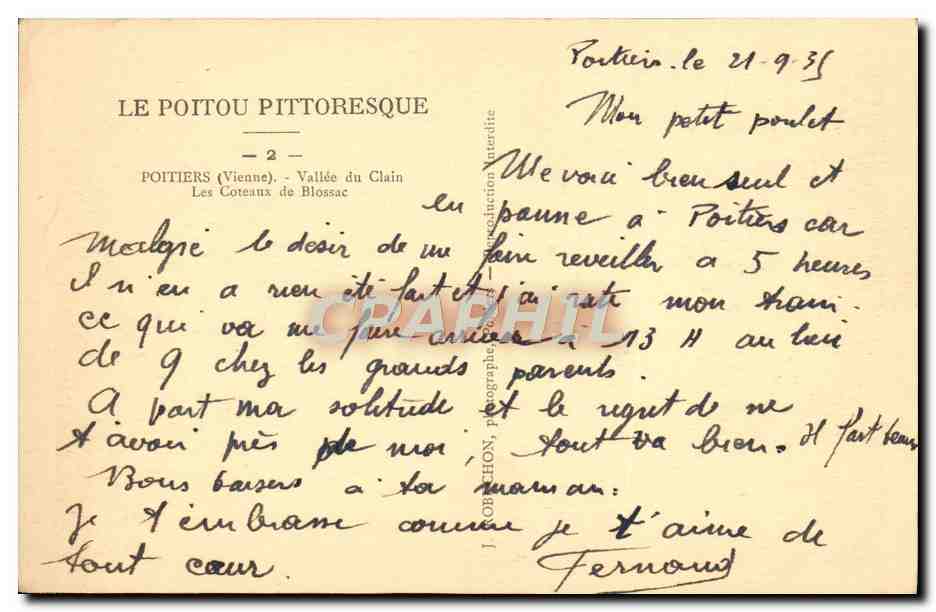 LE POITOU PITTORESQUE
- 2 -
POITIERS (Vienne). - Vallée du Clain
Les Coteaux de Blossac
J. ROBUCHON, photographe, Poitiers - Reproduction interdite
Poitiers. le 21-9-35
Mon petit poulet
Me voici bien seul et
en panne à Poitiers car
Malgré le désir de me faire reveiller a 5 heures
Il n'en a rien été fait et j'ai raté mon train.
ce qui va me faire arriver à 13 H au lieu
de 9 chez les grands parents.
A part ma solitude et le regret de ne
t'avoir près de moi, tout va bien. Il fait beau
Bons baisers à ta maman.
Je t'embrasse comme je t'aime de
tout cœur.
Fernand
CRAPHIL